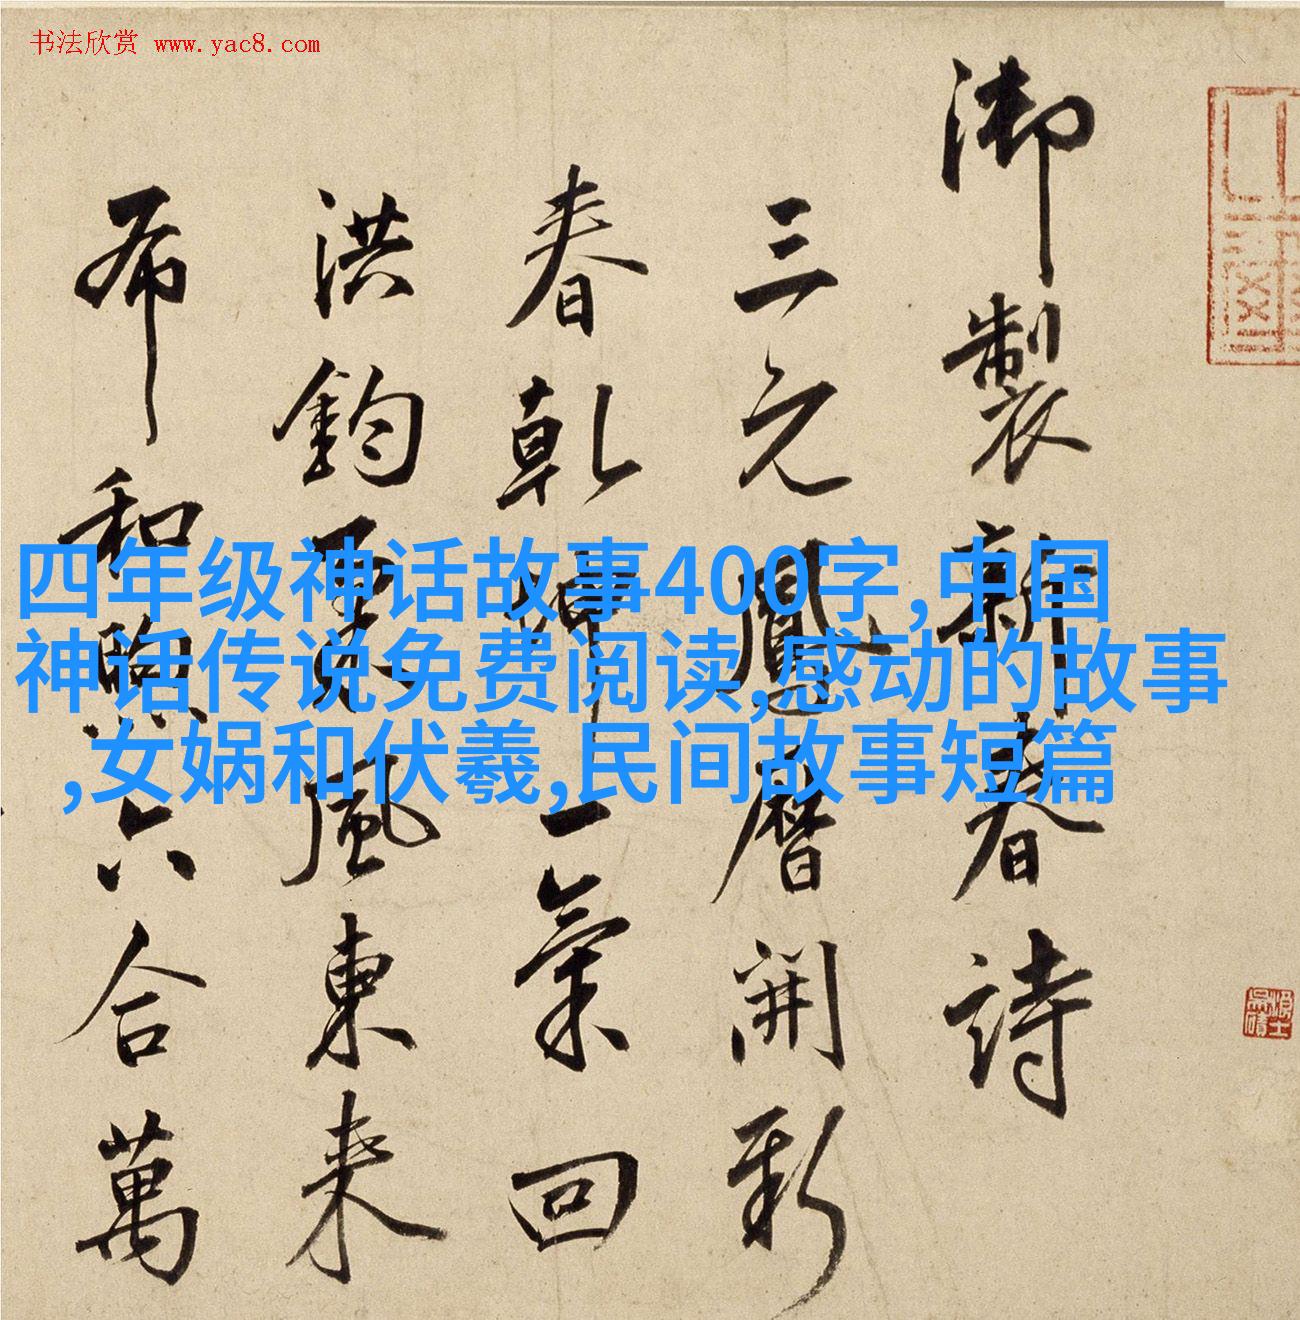 书法欣赏 www.yac8.com
御製新春詩
三元鳳曆開新
春乾坤一氣回
洪鈞氣風東来
布和煦六合萬
四年级神话故事400字,中国
神话传说免费阅读,感动的故事
,女娲和伏羲,民间故事短篇